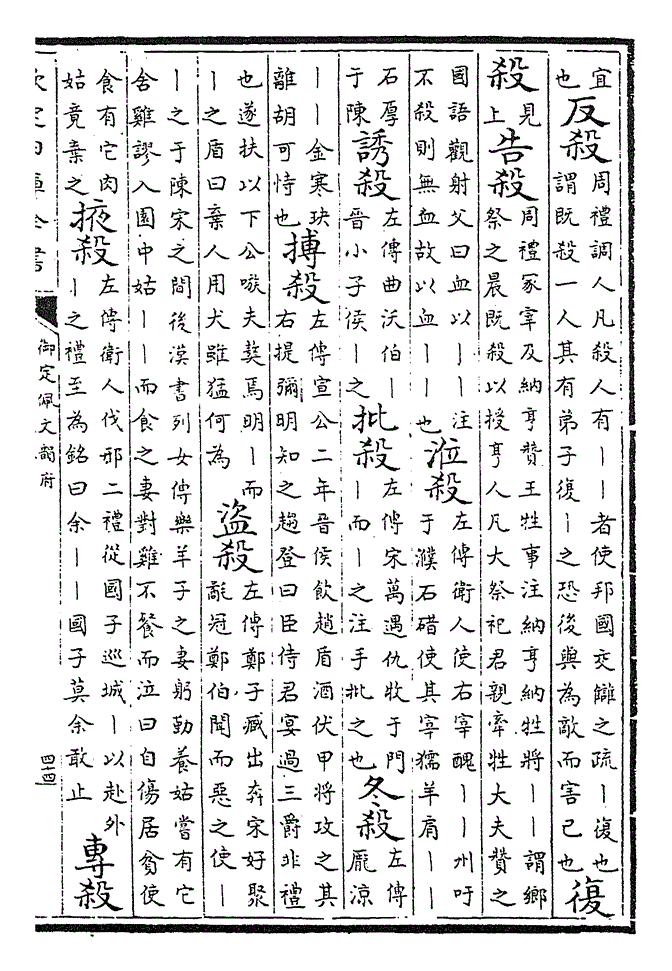 宜也反殺周禮調人凡殺人有丨丨者使邦國交讎之疏丨復也謂既殺一人其有弟子復丨之恐後與為敵而害已也復
殺見上告殺周禮冢宰及納亨贊王牲事注納亨納牲將丨丨謂鄉祭之晨既殺以授亨人凡大祭祀君親牽牲大夫贊之
國語觀射父曰血以丨丨注不殺則無血故以血丨丨也涖殺左傳衛人使右宰醜丨丨州吁于濮石碏使其宰獳羊肩丨丨
石厚于陳誘殺左傳曲沃伯丨晉小子侯丨之批殺左傳宋萬遇仇牧于門丨而丨之注手批之也冬殺左傳厖涼
丨丨金寒玦離胡可恃也搏殺左傳宣公二年晉侯飲趙盾酒伏甲將攻之其右提彌明知之趨登曰臣侍君宴過三爵非禮
也遂扶以下公嗾夫獒焉明丨而丨之盾曰棄人用犬雖猛何為盜殺左傳鄭子臧出奔宋好聚鷸冠鄭伯聞而惡之使丨
丨之于陳宋之間後漢書列女傳樂羊子之妻躬勤養姑嘗有它舍雞謬入園中姑丨丨而食之妻對雞不餐而泣曰自傷居貧使
食有它肉姑竟棄之掖殺左傳衛人伐邢二禮從國子巡城丨以赴外丨之禮至為銘曰余丨丨國子莫余敢止專殺
欽定四庫全書
御定佩文韻府
四十四